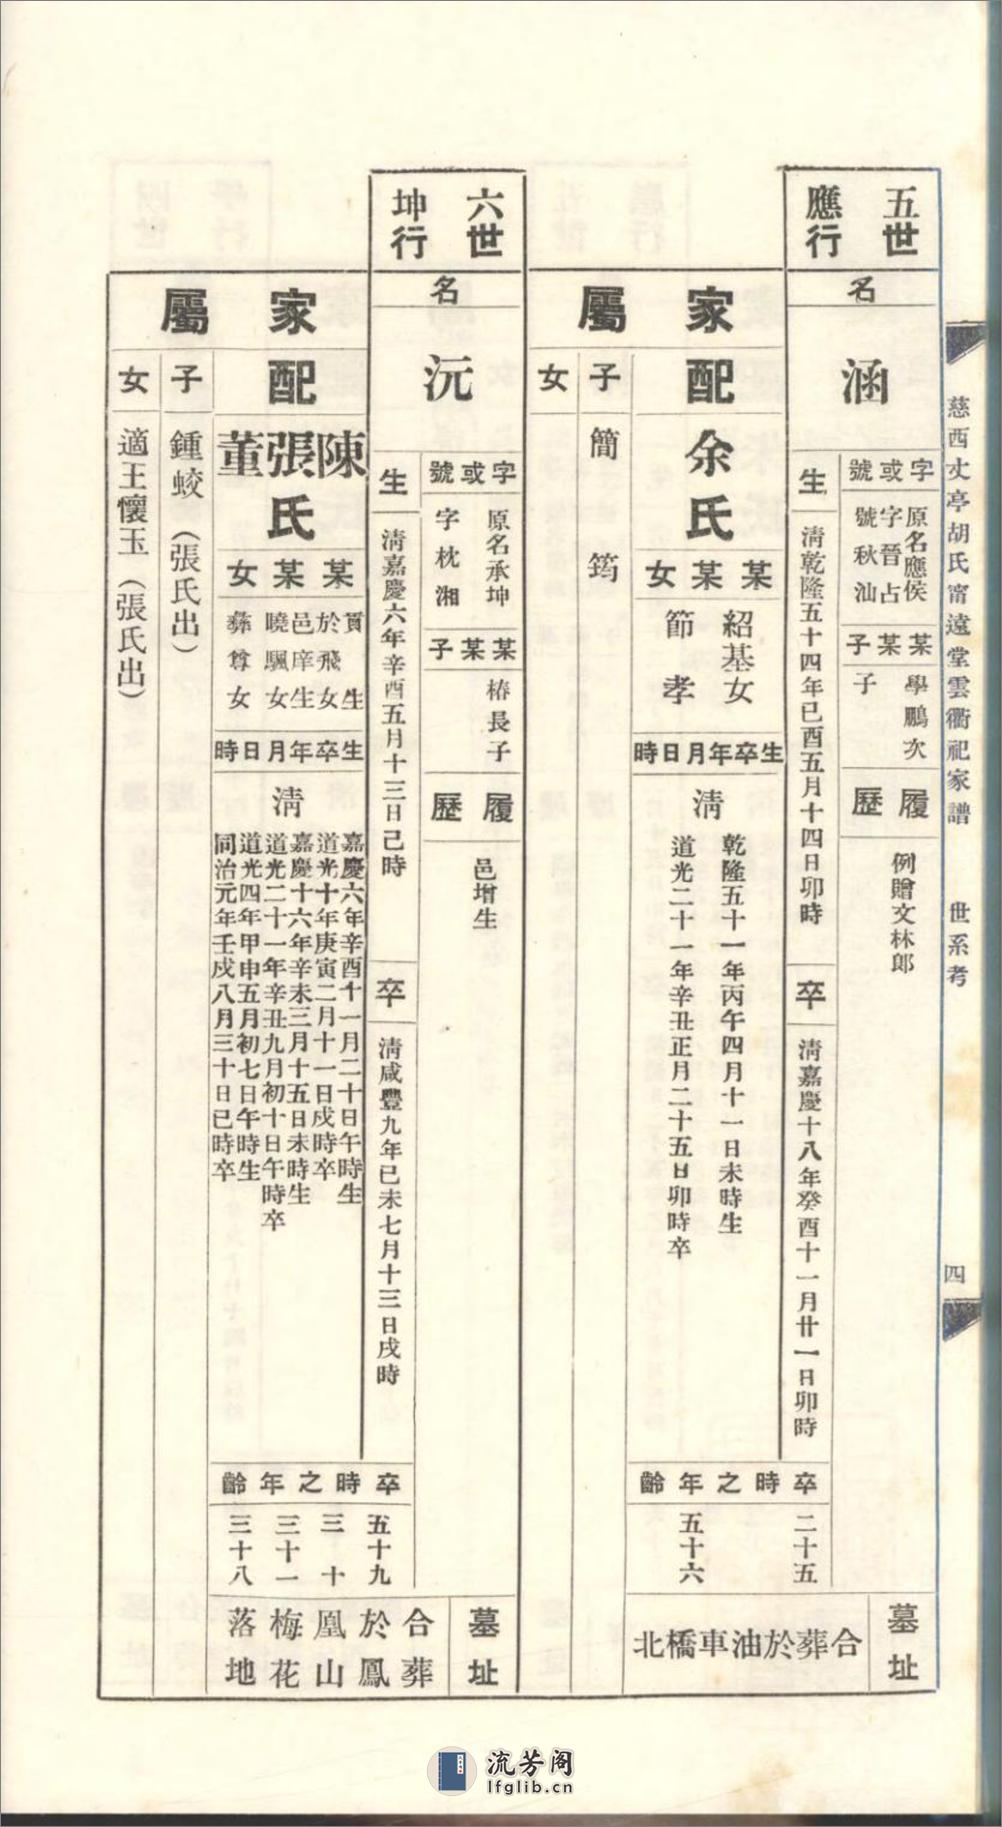 慈西丈亭胡氏甯遠堂雲衢祀家譜　世系考　四
五世
應行
名
涵
字或號
原名應侯
字晉占
號秋汕
某某子
學鵬次
子
履歷
例贈文林郎
生
清乾隆五十四年己酉五月十四日卯時
卒
清嘉慶十八年癸酉十一月廿一日卯時
家屬
配
余氏
某某女
紹基女
節孝
生卒年月日時
清
乾隆五十一年丙午四月十一日未時生
道光二十一年辛丑正月二十五日卯時卒
卒時之年齡
二十五
五十六
子
簡　筠
女
墓址
合葬於油車橋北
六世
坤行
名
沅
字或號
原名承坤
字枕湘
某某子
椿長子
履歷
邑增生
生
清嘉慶六年辛酉五月十三日己時
卒
清咸豐九年己未七月十三日戌時
家屬
配
陳張董氏
某某女
貢生
於飛女
邑庠生
曉颿女
彝尊女
生卒年月日時
清
嘉慶六年辛酉十一月二十日午時生
道光十年庚寅二月十一日戌時卒
嘉慶十六年辛未三月十五日未時生
道光二十一年辛丑九月初十日午時卒
道光四年甲申五月初七日午時生
同治元年壬戌八月三十日巳時卒
卒時之年齡
五十九
三十
三十一
三十八
子
鍾蛟（張氏出）
女
適王懷玉（張氏出）
墓址
合葬
於鳳
凰山
梅花
落地
流芳阁
lfglib.cn